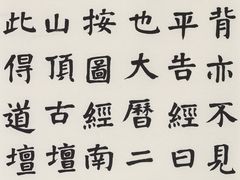 背亦不見
平告經曰
也大曆二
按圖經南
山頂古壇
此得道壇